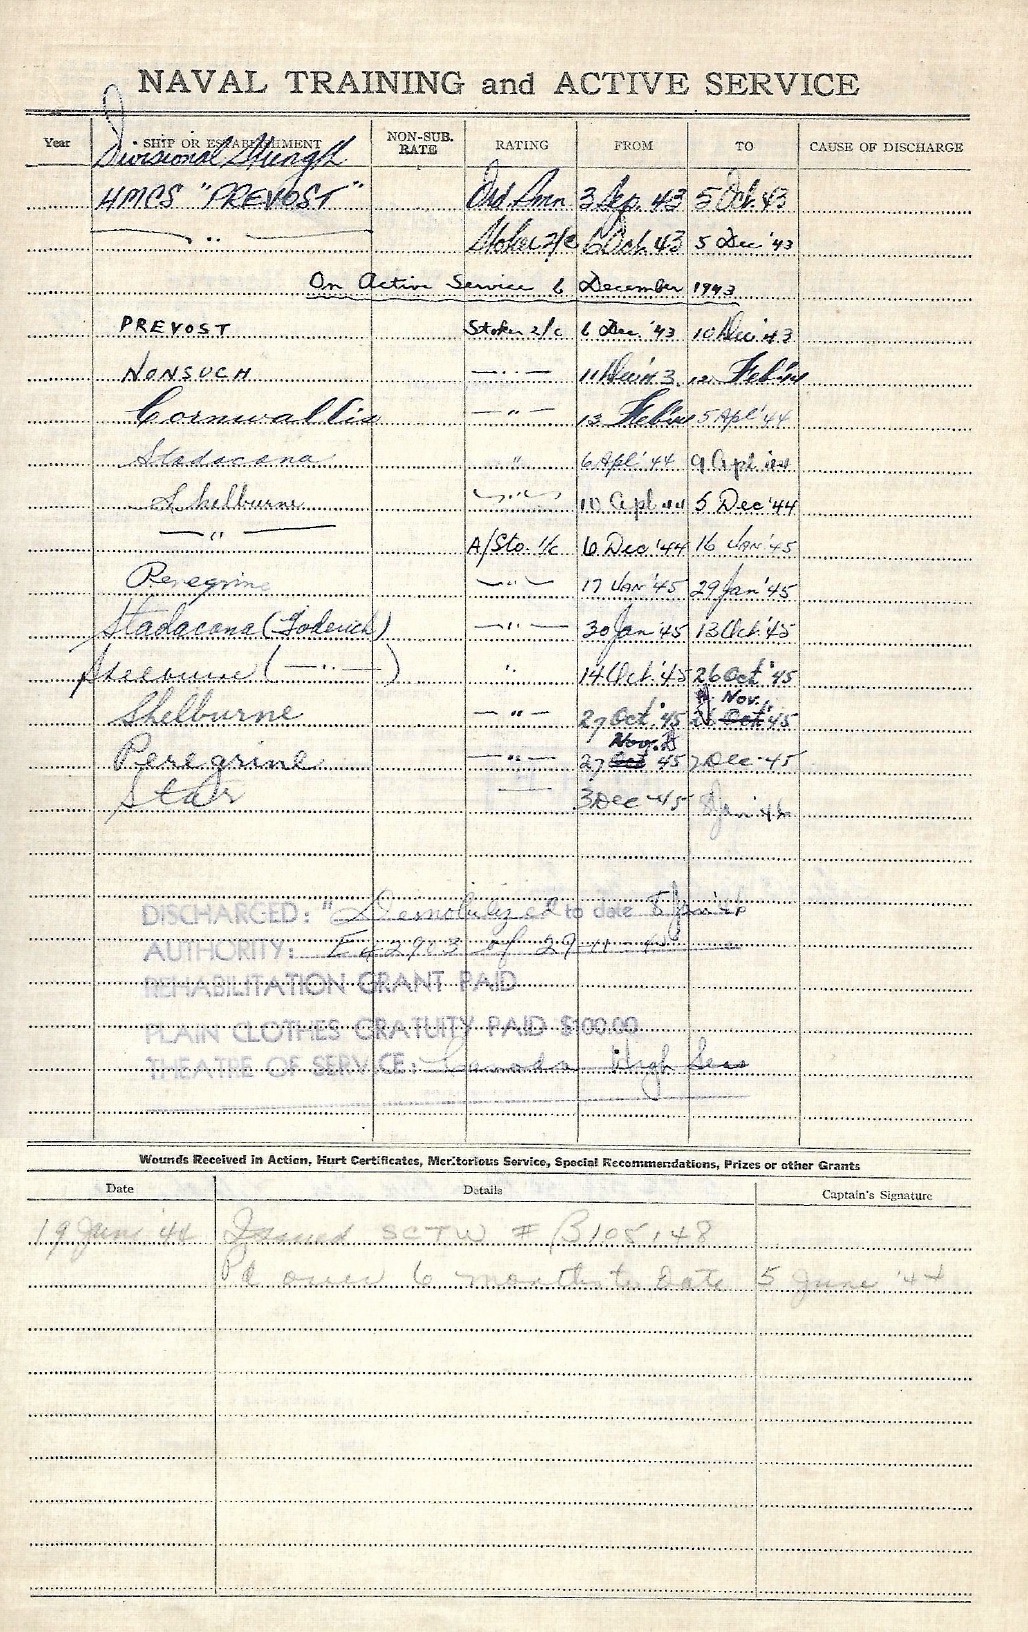 NAVAL TRAINING and ACTIVE SERVICE
Year SHIP OR ESTABLISHMENT NON-SUB. RATE RATING FROM TO CAUSE OF DISCHARGE
Divisional Strength
HMCS "PREVOST" Ord Smn 3 Sep. 43 5 Oct. 43
— " — Stoker 2/c 6 Oct. 43 5 Dec '43
On Active Service 6 December 1943
PREVOST Stoker 2/c 6 Dec '43 10 Dec '43
NONSUCH — " — 11 Dec '43 12 Feb '44
Cornwallis — " — 13 Feb '44 5 Apl '44
Stadacona " 6 Apl '44 9 Apl '44
Shelburne — " — 10 Apl '44 5 Dec '44
— " — A/Sto. 1/c 6 Dec. '44 16 Jan '45
Peregrine — " — 17 Jan '45 29 Jan '45
Stadacona (Goderich) — " — 30 Jan '45 13 Oct. '45
Shelburne ( — " — ) " 14 Oct. '45 26 Oct '45
Shelburne — " — 27 Oct. '45 26 Oct Nov. '45
Peregrine — " — 27 Oct Nov. 45 2 Dec 45
Star — 3 Dec 45 8 Jan '46
DISCHARGED: "Demobilized to date 8 Jan '46
AUTHORITY: of 29-11-45
REHABILITATION GRANT PAID
PLAIN CLOTHES GRATUITY PAID $100.00
THEATRE OF SERVICE: Canada High Seas
Wounds Received in Action, Hurt Certificates, Meritorious Service, Special Recommendations, Prizes or other Grants
Date Details Captain's Signature
19 June '44 Issued SCTW # B105148
Pd over 6 months to Date 5 June '44